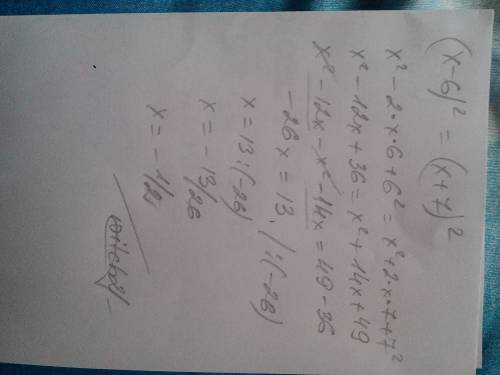 (x-6)² = (x+7)²
x² - 2·x·6 + 6² = x² + 2·x·7 + 7²
x² - 12x + 36 = x² + 14x + 49
x² - 12x - x² - 14x = 49 - 36
-26x = 13 /:(-26)
x = 13:(-26)
x = - 13/26
x = - 1/2